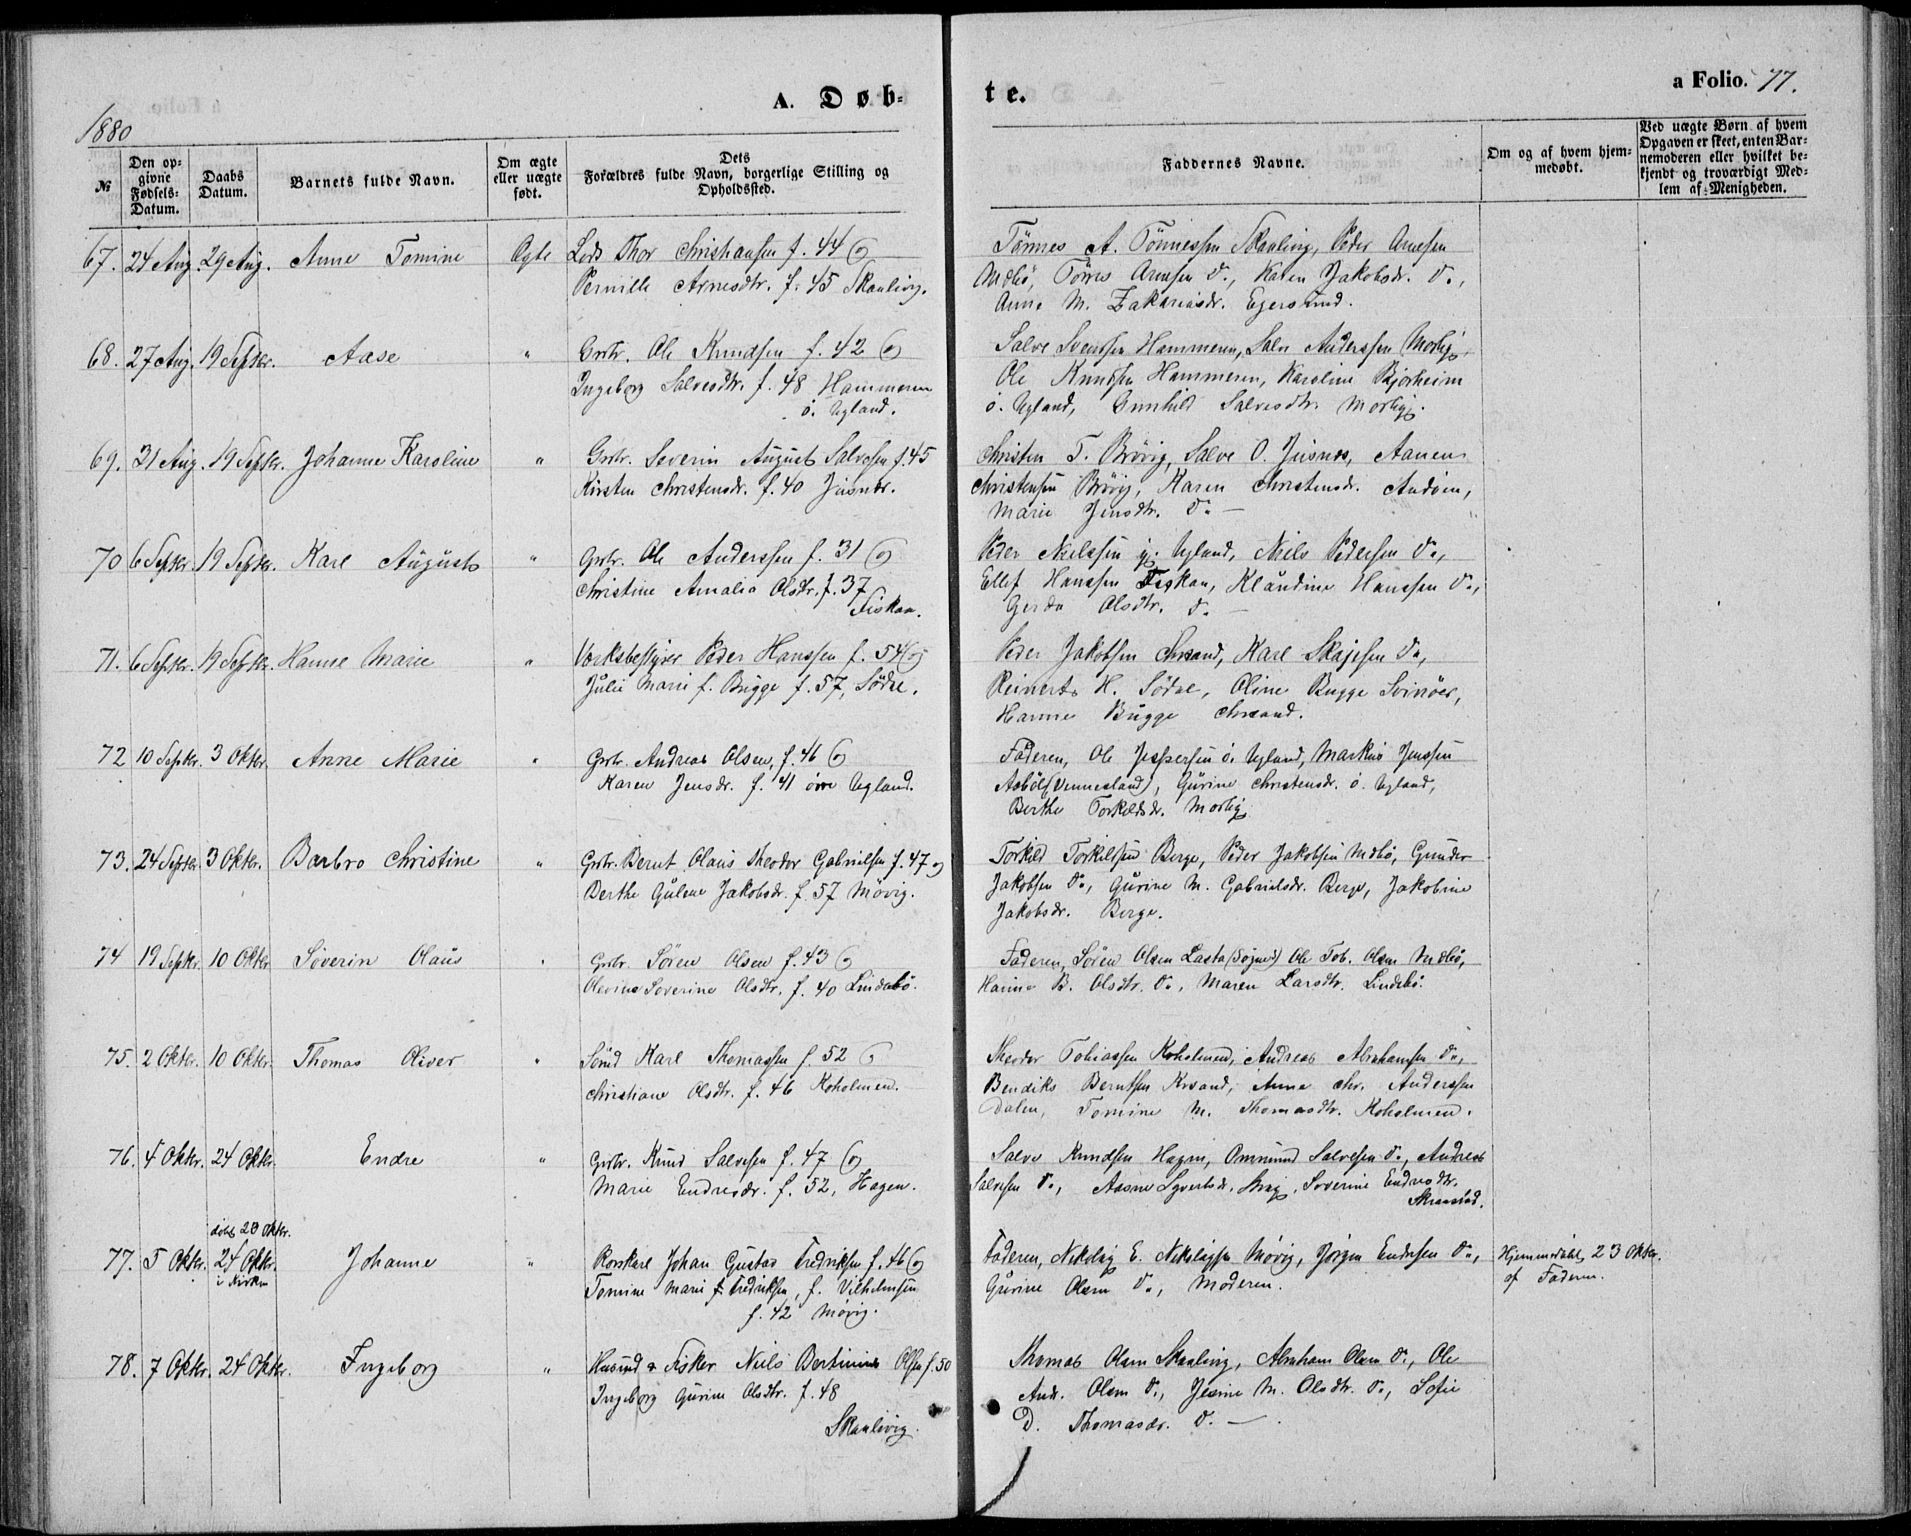 A. Døb-
te.
a Folio. 77.
1880
№
Den op-
givne
Fødsels-
Datum.
Daabs
Datum.
Barnets fulde Navn.
Om ægte
eller uægte
født.
Dets
Forældres fulde Navn, borgerlige Stilling og
Opholdssted.
Faddernes Navne.
Om og af hvem hjem-
medøbt.
Ved uægte Børn af hvem
Opgaven er skeet, enten Bar-
nemoderen eller hvilket be-
kjendt og troværdigt Med-
lem af Menigheden.
67. 24 Aug. 29 Aug. Anne Tomine Ægte Lods Thor Christiansen f. 44 og
Pernille Arnesdtr. f. 45 Skaalivig.
Tönnes A. Tönnessen Skaalivig, Peder Arnesen
Medbö, Törres Arnesen do., Karen Jakobsdr. do.,
Anne M. Zakariasdr. Egersund.
68. 27 Aug. 19 Septbr. Aase " Grbr. Ole Knudsen f. 42 og
Ingeborg Salvesdtr. f. 48 Hammeren
ö. Ugland.
Salve Svensen Hammeren, Salve Anderssen Mosbyg,
Ole Knudsen Hammeren, Karoline Bjorheim
ö. Ugland, Gunhild Salvesdtr.
69. 31 Aug. 19 Septbr. Johanne Karoline " Grbr. Severin August Salvesen f. 45
Kirsten Christensdr. f. 40
Christen T. Brövig, Salve O. Aanen
Christensen Brövig, Karen Christensdr. Andöen,
Marie Jensdtr. do. —
70 6 Septbr. 19 Septbr. Karl August " Grbr. Ole Anderssen f. 31 og
Christine Amalia Olsdtr. f. 37
Fiskaa.
Peder Nielssen y. Ugland, Niels Pedersen do.,
Ellef Hanssen Fiskaa, Klaudine Hanssen do.,
Gerda Olsdtr. do. —
71. 6 Septbr. 19 Septbr. Hanne Marie " Værksbestyrer Peder Hanssen f. 54 og
Julie Marie f. Bugge f. 57, Södal.
Peder Jakobsen Chrsand, Karl Skajesen do.,
Reinert H. Södal, Oline Bugge Svinöer,
Hanne Bugge Chrsand.
72 10 Septbr. 3 Oktbr. Anne Marie " Grbr. Andreas Olsen, f. 46 og
Karen Jensdr. f. 41 övre Ugland.
Faderen, Ole Jespersen ö. Ugland, Markus Jenssen
Aasböl (Vennesland), Gurine Christensdr. ö. Ugland,
Berthe Torkildsdr.
73. 24 Septbr. 3 Oktbr. Barbro Christine " Grbr. Bernt Olaus Theodor Gabrielsen f. 47 og
Berthe Gulene Jakobsdr. f. 57 Mövig.
Torkild Torkildsen Berge, Peder Jakobsen Medbö, Gunder
Jakobsen do., Gurine M. Gabrielsdr. Berge, Jakobine
Jakobsdr. Berge.
74 19 Septbr. 10 Oktbr. Söverin Olaus " Grbr. Sören Olsen f. 43 og
Olevine Severine Olsdtr. f. 40 Lindebö.
Faderen, Sören Olsen Lasta (Sögne) Ole Tob. Olsen Medbö,
Hanne B. Olsdtr. do., Maren Larsdtr. Lindebö.
75. 2 Oktbr. 10 Oktbr. Thomas Oliver " Sömd Karl Thomassen f. 52 og
Christiane Olsdtr. f. 46 Koholmen.
Theodor Tobiassen Koholmen, Andreas Abrahamsen do.,
Bendiks Berntsen Krsand, Anne Chr. Anderssen
Dalen, Tomine M. Thomasdtr. Koholmen.
76. 4 Oktbr. 24 Oktbr. Endre " Grbr. Knud Salvesen f. 47 og
Marie Endresdr. f. 52, Hagen.
Salve Knudsen Hagen, Ommund Salvesen do., Andreas
Salvesen do., Aasne Syvertsdr. Strai, Soverine Endresdtr.
77. 5 Oktbr. döbt 23 Oktbr.
24 Oktbr.
i Kirken
Johanne " Korskarl Johan Gustav Fredriksen f. 46 og
Tomine Marie Fredriksen, f. Vilhelmsen
f. 42 Mövig.
Faderen, Nikolai E. Nikolaysen Mövig, Jörgen Endresen do.,
Gurine Olsen do., Moderen.
Hjemmedöbt 23 Oktbr.
af Faderen.
78. 7 Oktbr. 24 Oktbr. Ingeborg " Husmd & Fisker Niels Bertinius Olsen f. 50
Ingeborg Gurine Olsdtr. f. 48
Skaalivig.
Thomas Olsen Skaalivig, Abraham Olsen do., Ole
Andr. Olsen do., Jesine M. Olsdtr. do., Sofie
D. Thomasdr. do. —